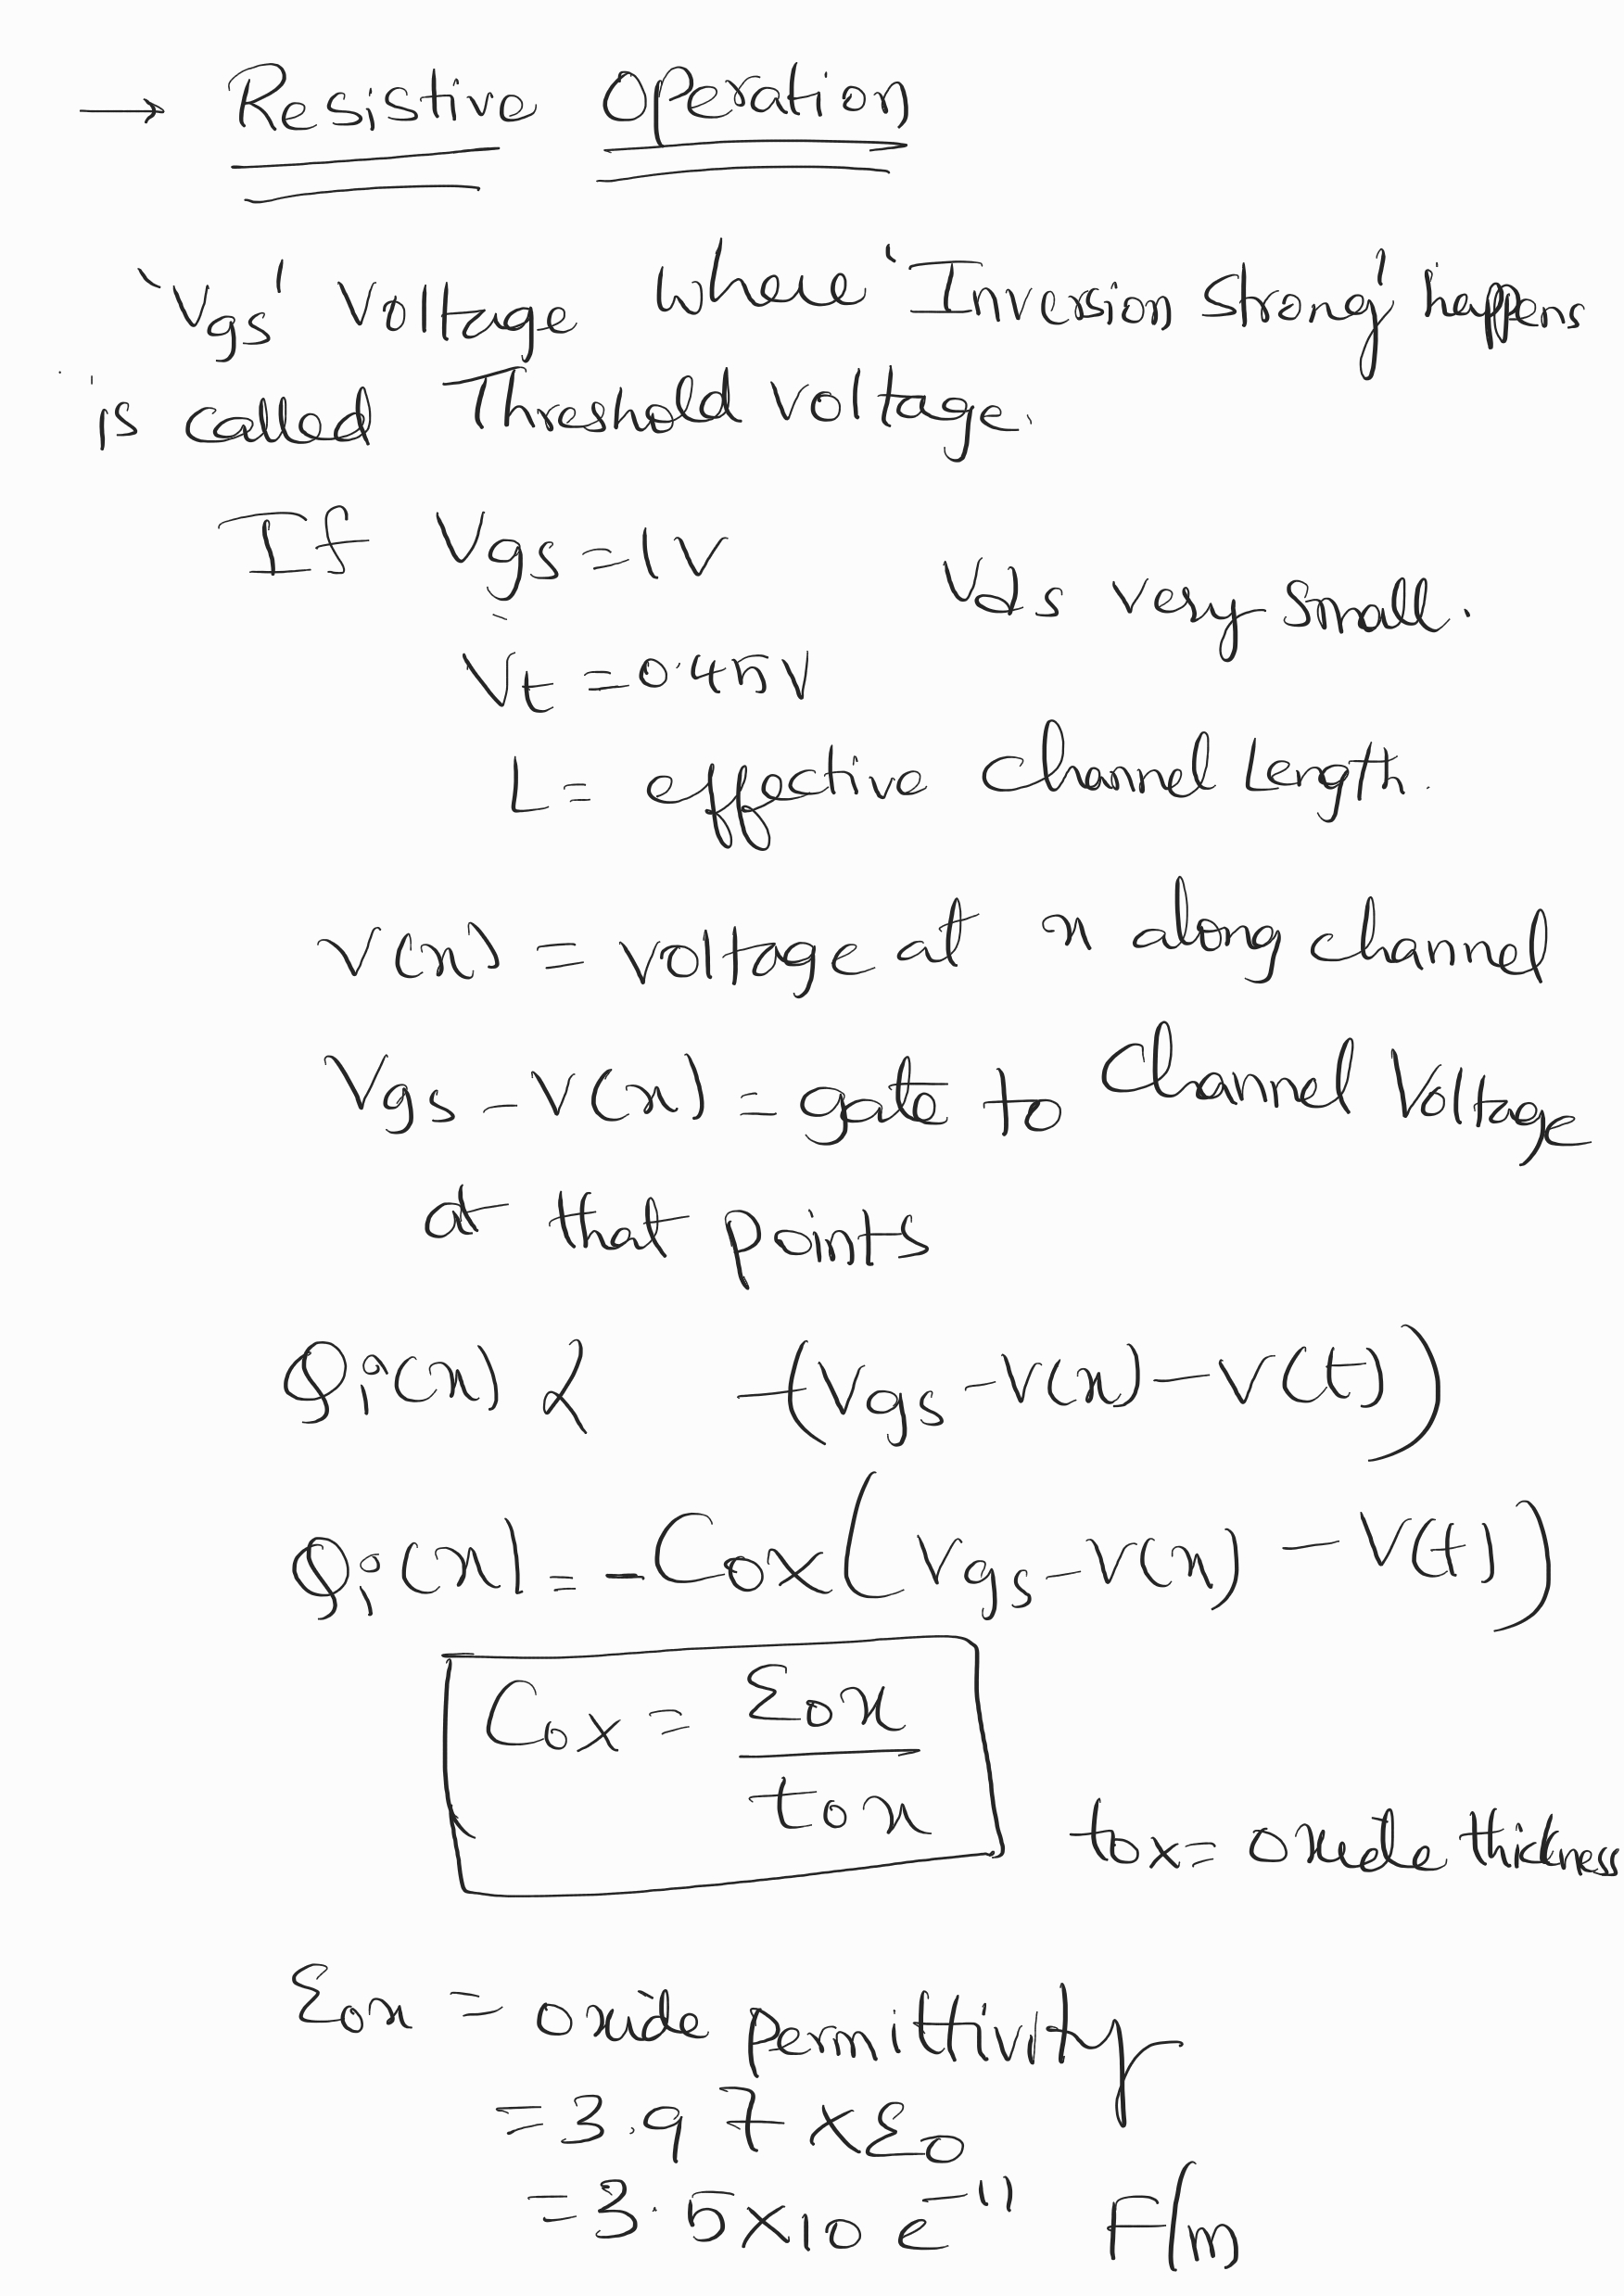 → Resistive Operation
'Vgs' Voltage where 'Inversion strong' happens
is called Threshold voltage.
If Vgs = 1V
Vds very small.
Vt = 0.45V
L = effective channel Length.
V(x) = voltage at x along channel
Vgs - V(x) = gate to channel Voltage
at that points
Qi(x) ∝ -(Vgs - V(x) - V(t))
Qi(x) = -Cox(Vgs - V(x) - V(t))
Cox = εox / tox
tox = oxide thickness
εox = oxide permittivity
= 3.97 × ε0
= 3.5×10 e^-11 F/m